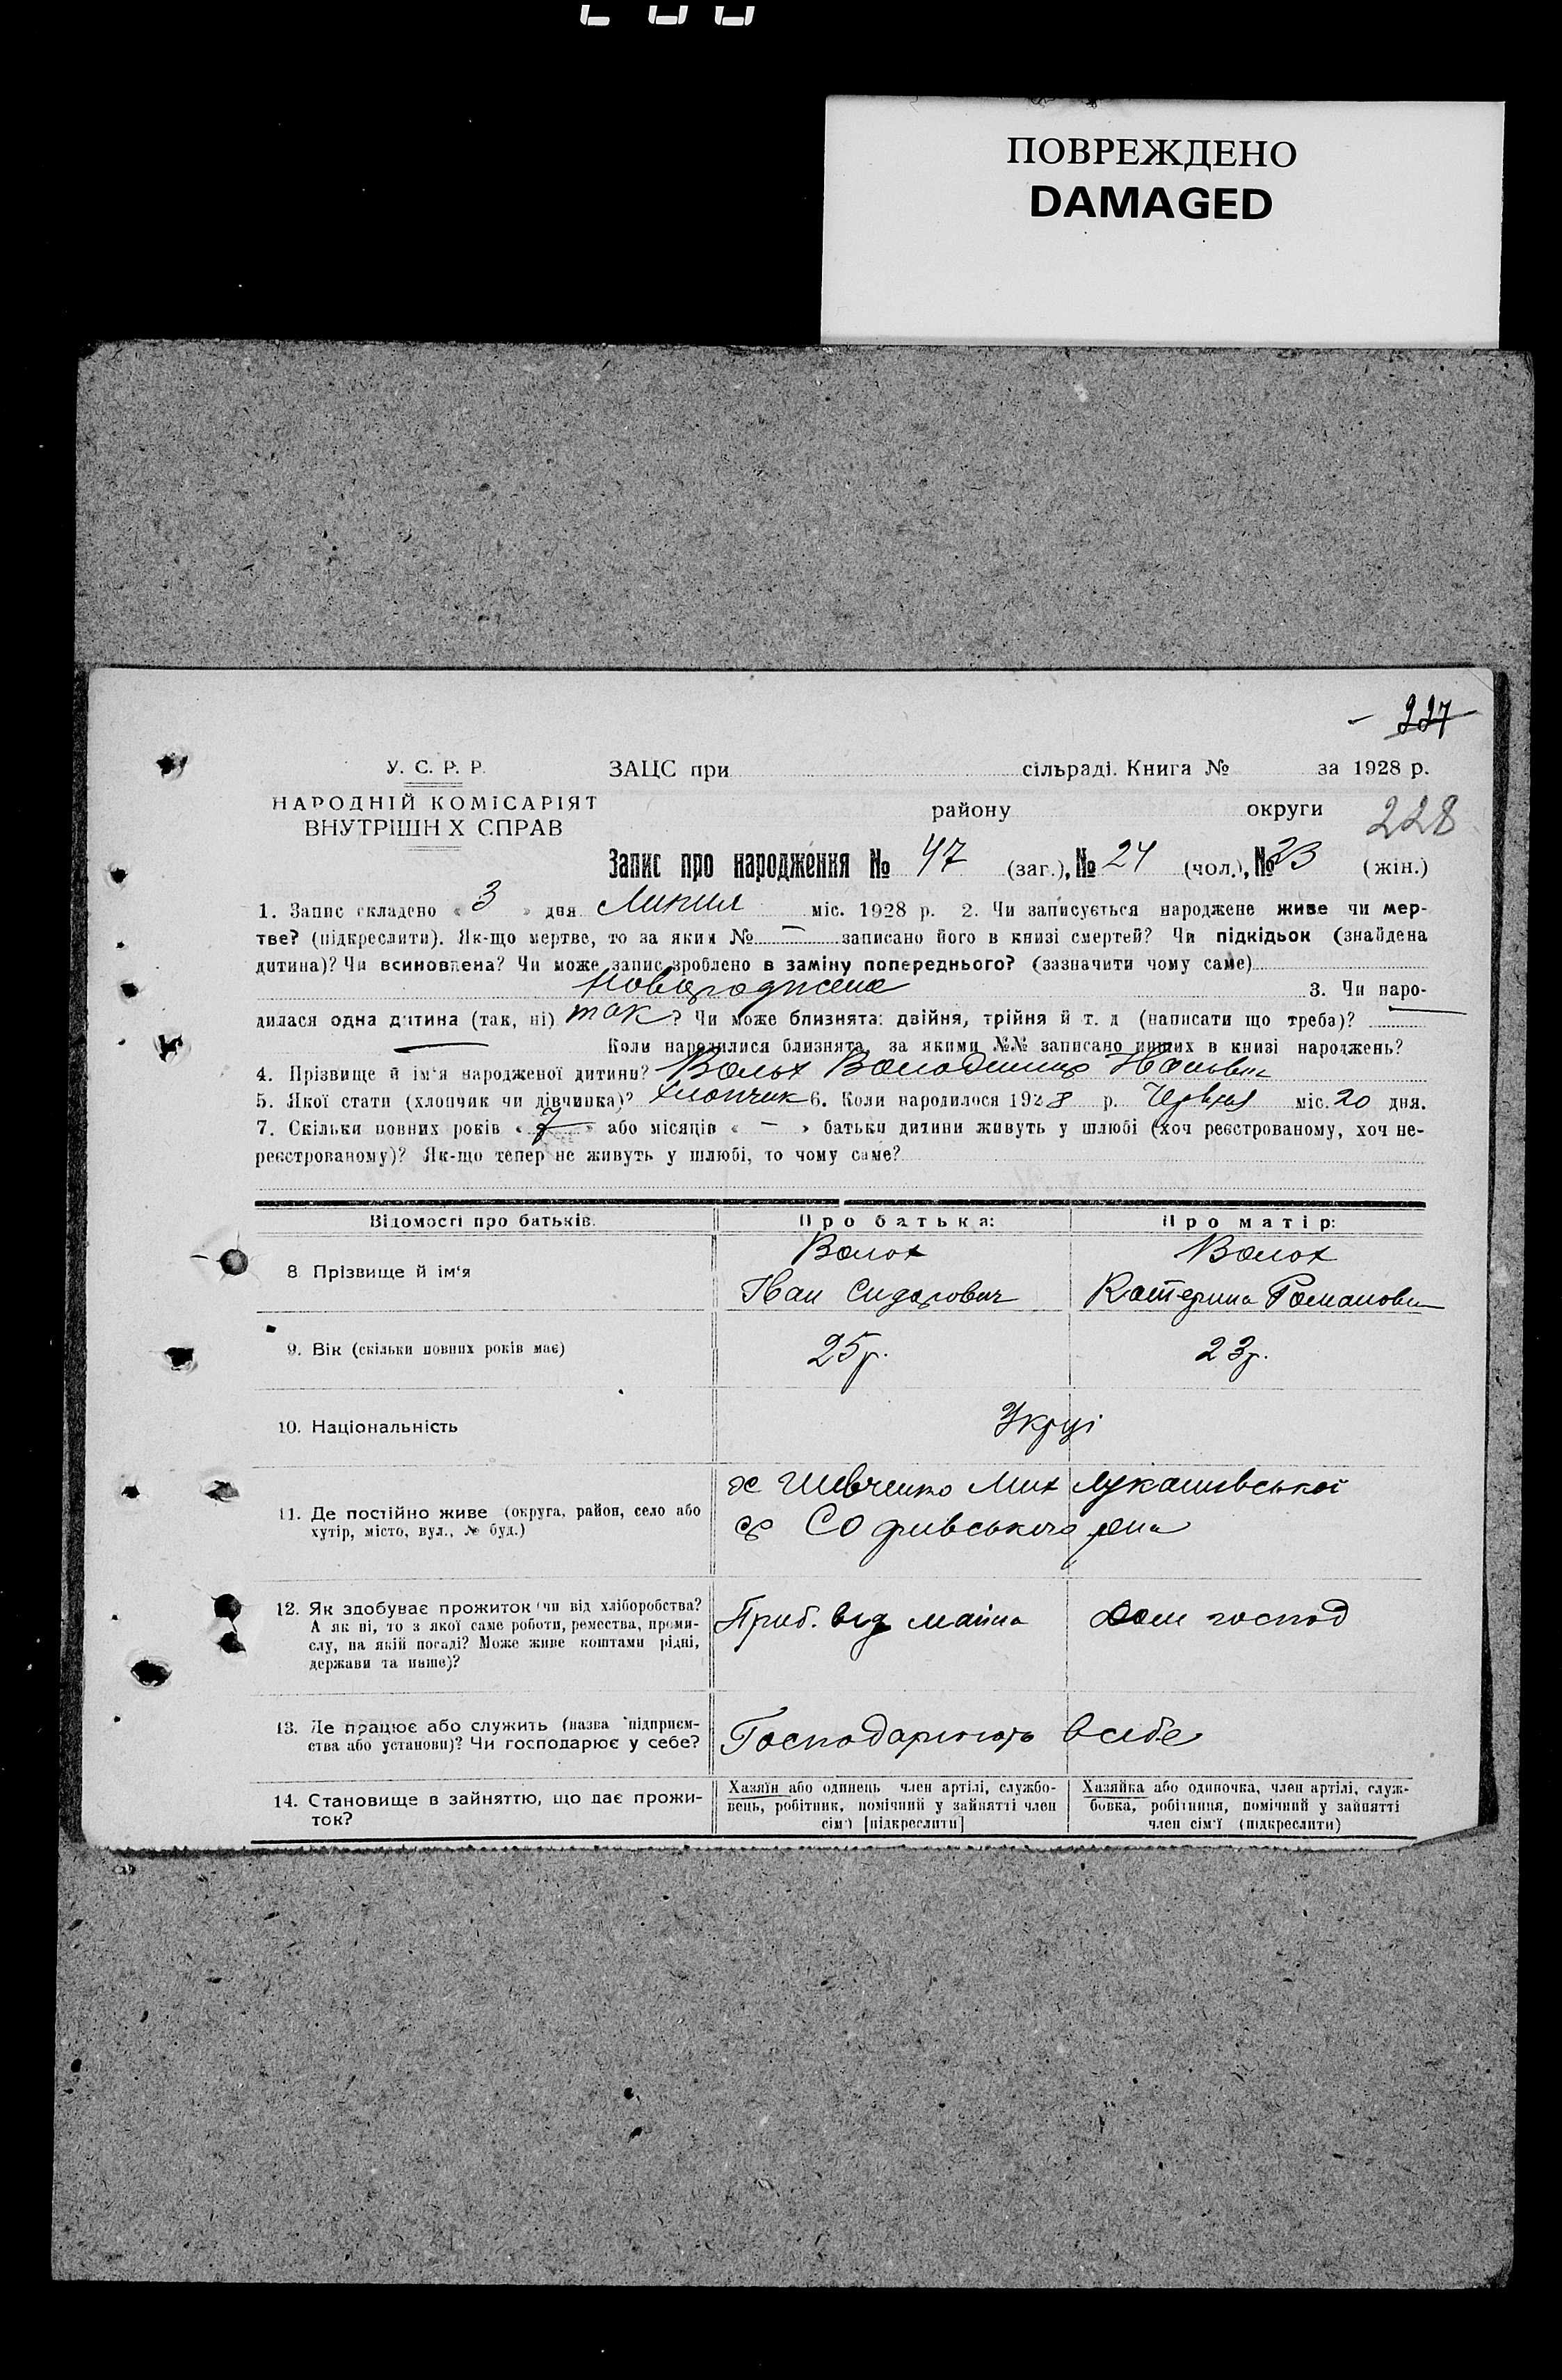 ПОВРЕЖДЕНО
DAMAGED
227
У. С. Р. Р.
НАРОДНІЙ КОМІСАРІЯТ
ВНУТРІШН Х СПРАВ
ЗАЦС при сільраді. Книга № за 1928 р.
району округи 228
Запис про народження № 47 (заг.), № 24 (чол.), № 23 (жін.)
1. Запис складено « 3 » дня Липня міс. 1928 р. 2. Чи записується народжене живе чи мер-
тве? (підкреслити). Як-що мертве, то за яким № — записано його в книзі смертей? Чи підкідьок (знайдена
дитина)? Чи всиновлена? Чи може запис зроблено в заміну попереднього? (зазначити чому саме)
Новороджене 3. Чи наро-
дилася одна дитина (так, ні) так? Чи може близнята: двійня, трійня й т. д (написати що треба)? —
— Коли народилися близнята, за якими №№ записано инших в книзі народжень?
4. Прізвище й ім'я народженої дитини? Волох Володимир Іванович
5. Якої стати (хлопчик чи дівчинка)? хлопчик 6. Коли народилося 1928 р. Червня міс. 20 дня.
7. Скільки повних років « 7 » або місяців « — » батьки дитини живуть у шлюбі (хоч реєстрованому, хоч не-
реєстрованому)? Як-що тепер не живуть у шлюбі, то чому саме?
Відомості про батьків. Про батька: Про матір:
8 Прізвище й ім'я Волох Іван Сидорович Волох Катерина Романовн
9. Вік (скільки повних років має) 25 р. 23 р.
10. Національність Укрці
11. Де постійно живе (округа, район, село або
хутір, місто, вул., № буд.)
х Шевченко Мих Лукашивської
с/р рна
12. Як здобуває прожиток (чи від хліборобства?
А як ні, то з якої саме роботи, ремества, проми-
слу, на якій посаді? Може живе коштами рідні,
держави та инше)?
Приб. від майна Дом господ
13. Де працює або служить (назва підприєм-
ства або установи)? Чи господарює у себе?
Господарюють в себе
14. Становище в зайняттю, що дає прожи-
ток?
Хазяїн або одинець член артілі, службо-
вець, робітник, помічний у зайнятті член
сім'ї [підкреслити]
Хазяйка або одиночка, член артілі, служ-
бовка, робітниця, помічний у зайнятті
член сім'ї (підкреслити)